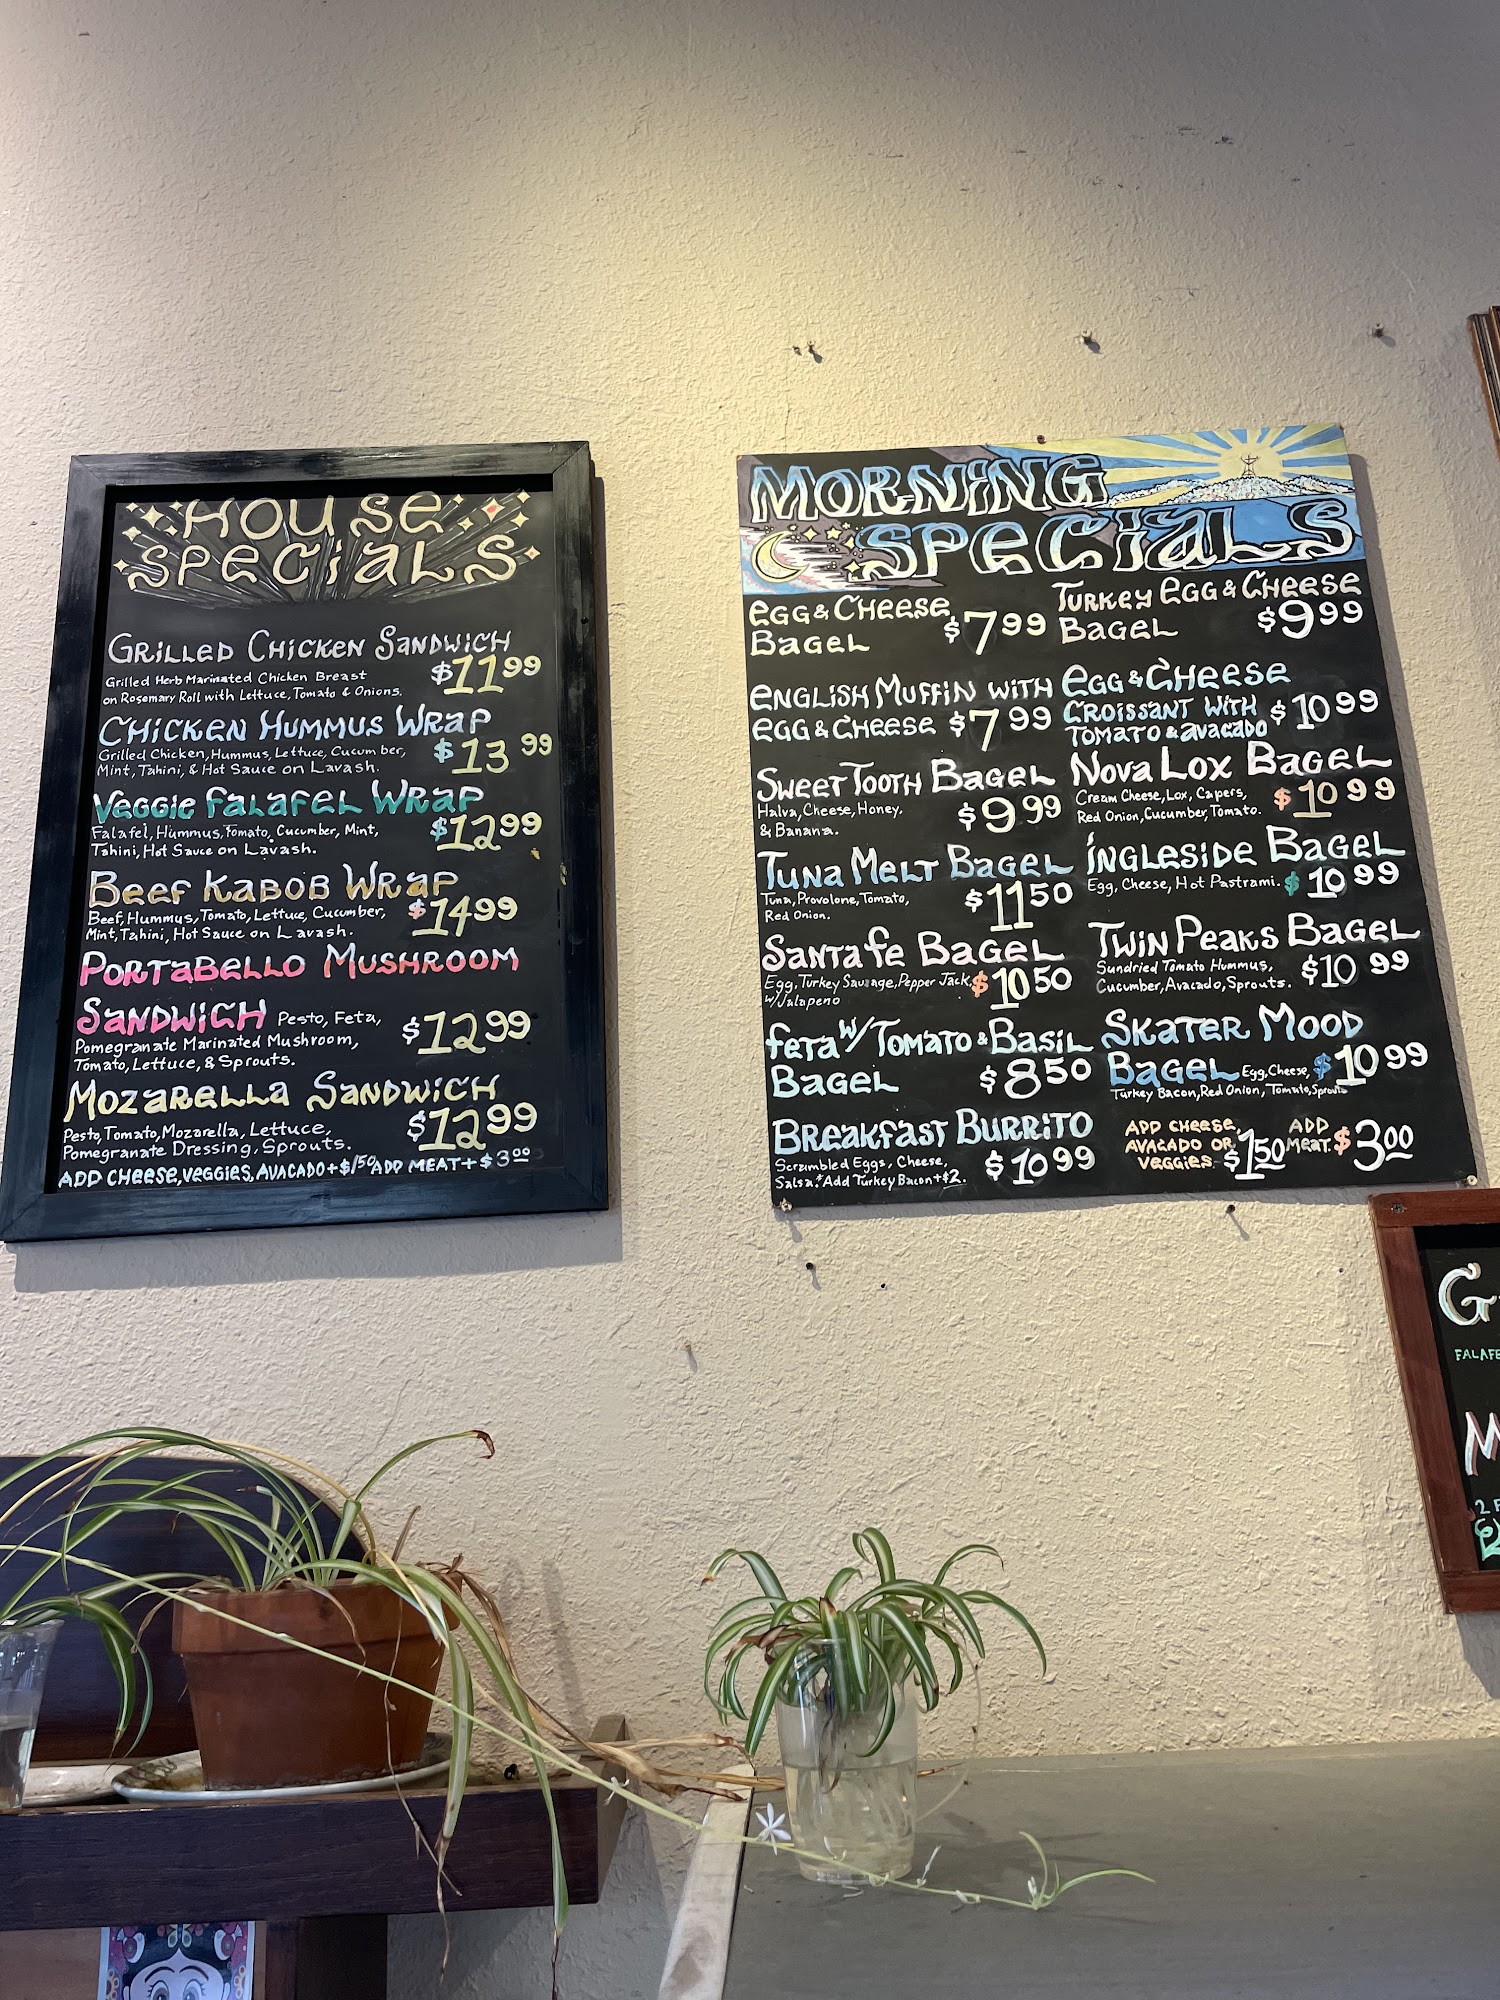 HOUSE
SPECIALS
GRILLED CHICKEN SANDWICH
Grilled Herb Marinated Chicken Breast
on Rosemary Roll with Lettuce, Tomato & Onions.
$11.99
CHICKEN HUMMUS WRAP
Grilled Chicken, Hummus, Lettuce, Cucumber,
Mint, Tahini, & Hot Sauce on Lavash.
$13 99
VEGGIE FALAFEL WRAP
Falafel, Hummus, Tomato, Cucumber, Mint,
Tahini, Hot Sauce on Lavash.
$12 99
BEEF KABOB WRAP
Beef, Hummus, Tomato, Lettuce, Cucumber,
Mint, Tahini, Hot Sauce on Lavash.
$14 99
PORTABELLO MUSHROOM
SANDWICH Pesto, Feta,
Pomegranate Marinated Mushroom,
Tomato, Lettuce, & Sprouts.
$12 99
MOZARELLA SANDWICH
Pesto, Tomato, Mozarella, Lettuce,
Pomegranate Dressing, Sprouts.
$12 99
ADD CHEESE, VEGGIES, AVACADO + $1.50 ADD MEAT + $3.00
MORNING
SPECIALS
EGG & CHEESE
BAGEL $7 99
ENGLISH MUFFIN WITH
EGG & CHEESE $7 99
SWEET TOOTH BAGEL
Halva, Cheese, Honey,
& Banana.
$9.99
TUNA MELT BAGEL
Tuna, Provolone, Tomato,
Red Onion.
$11 50
SANTA FE BAGEL
Egg, Turkey Sausage, Pepper Jack,
w/Jalapeno
$10 50
FETA W/ TOMATO & BASIL
BAGEL $8 50
BREAKFAST BURRITO
Scrambled Eggs, Cheese,
Salsa. *Add Turkey Bacon +$2.
$10 99
TURKEY EGG & CHEESE
BAGEL $9 99
EGG & CHEESE
CROISSANT WITH
TOMATO & AVACADO
$10 99
NOVA LOX BAGEL
Cream Cheese, Lox, Capers,
Red Onion, Cucumber, Tomato.
$10 99
INGLESIDE BAGEL
Egg, Cheese, Hot Pastrami. $10 99
TWIN PEAKS BAGEL
Sundried Tomato Hummus,
Cucumber, Avacado, Sprouts.
$10 99
SKATER MOOD
BAGEL Egg, Cheese,
Turkey Bacon, Red Onion, Tomato, Sprouts
$10 99
ADD CHEESE,
AVACADO OR
VEGGIES- $1.50
ADD
MEAT. $3 00
G
FALAFE
M
2 F